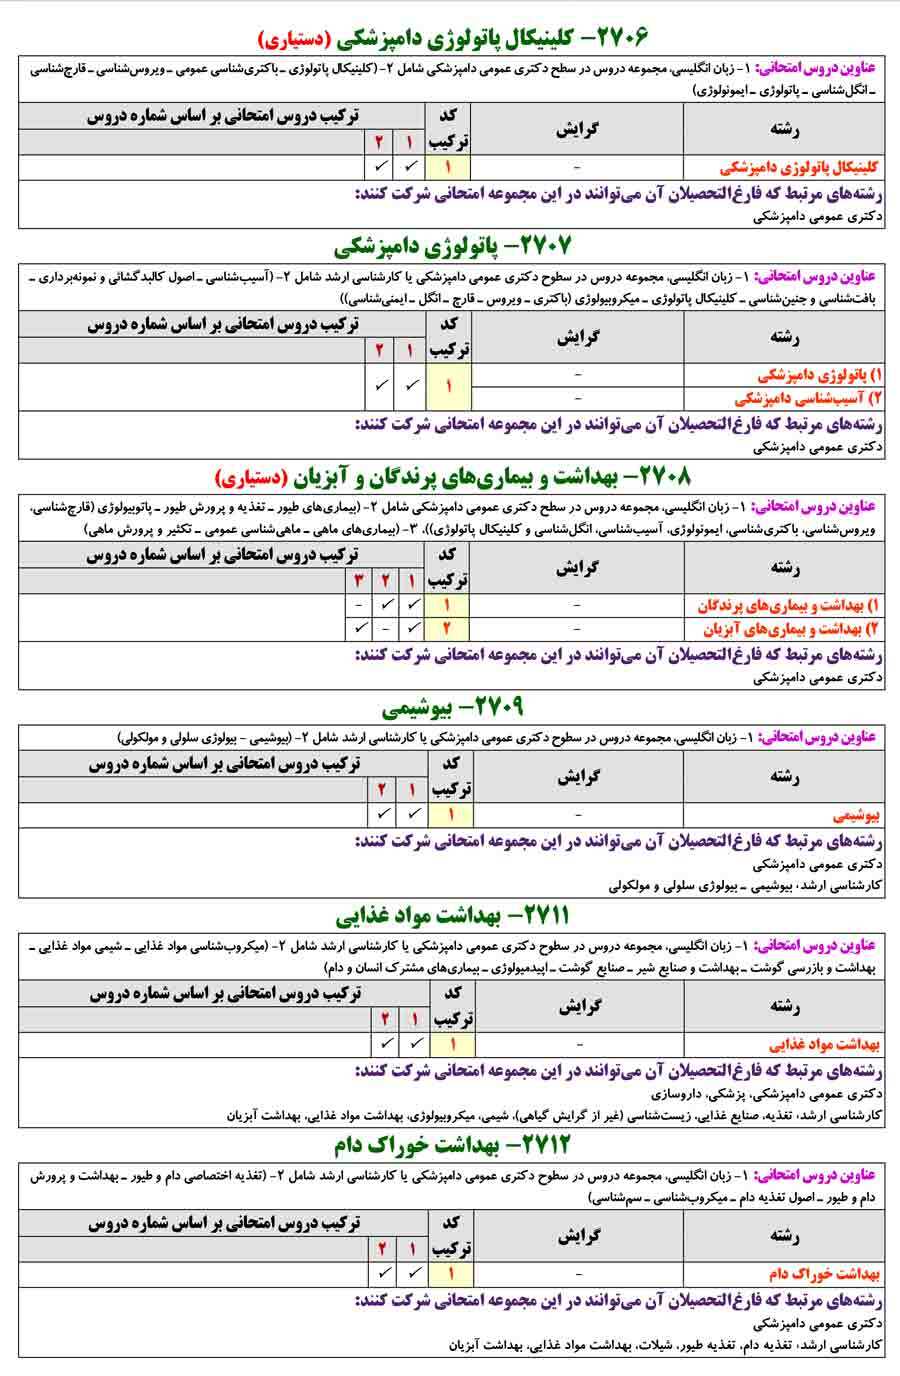 ۲۷۰۶- کلینیکال پاتولوژی دامپزشکی (دستیاری)
عناوین دروس امتحانی: ۱- زبان انگلیسی، مجموعه دروس در سطح دکتری عمومی دامپزشکی شامل ۲- (کلینیکال پاتولوژی ـ باکتری‌شناسی عمومی ـ ویروس‌شناسی ـ قارچ‌شناسی
ـ انگل‌شناسی ـ پاتولوژی ـ ایمونولوژی)
رشته گرایش کد ترکیب ترکیب دروس امتحانی بر اساس شماره دروس
۱ ۲
کلینیکال پاتولوژی دامپزشکی - ۱ ✓ ✓
رشته‌های مرتبط که فارغ‌التحصیلان آن می‌توانند در این مجموعه امتحانی شرکت کنند:
دکتری عمومی دامپزشکی
۲۷۰۷- پاتولوژی دامپزشکی
عناوین دروس امتحانی: ۱- زبان انگلیسی، مجموعه دروس در سطوح دکتری عمومی دامپزشکی یا کارشناسی ارشد شامل ۲- (آسیب‌شناسی ـ اصول کالبدگشائی و نمونه‌برداری ـ
بافت‌شناسی و جنین‌شناسی ـ کلینیکال پاتولوژی ـ میکروبیولوژی (باکتری ـ ویروس ـ قارچ ـ انگل ـ ایمنی‌شناسی))
رشته گرایش کد ترکیب ترکیب دروس امتحانی بر اساس شماره دروس
۱ ۲
۱) پاتولوژی دامپزشکی - ۱ ✓ ✓
۲) آسیب‌شناسی دامپزشکی -
رشته‌های مرتبط که فارغ‌التحصیلان آن می‌توانند در این مجموعه امتحانی شرکت کنند:
دکتری عمومی دامپزشکی
۲۷۰۸- بهداشت و بیماری‌های پرندگان و آبزیان (دستیاری)
عناوین دروس امتحانی: ۱- زبان انگلیسی، مجموعه دروس در سطح دکتری عمومی دامپزشکی شامل ۲- (بیماری‌های طیور ـ تغذیه و پرورش طیور ـ پاتوبیولوژی (قارچ‌شناسی،
ویروس‌شناسی، باکتری‌شناسی، ایمونولوژی، آسیب‌شناسی، انگل‌شناسی و کلینیکال پاتولوژی))، ۳- (بیماری‌های ماهی ـ ماهی‌شناسی عمومی ـ تکثیر و پرورش ماهی)
رشته گرایش کد ترکیب ترکیب دروس امتحانی بر اساس شماره دروس
۱ ۲ ۳
۱) بهداشت و بیماری‌های پرندگان - ۱ ✓ ✓ -
۲) بهداشت و بیماری‌های آبزیان - ۲ ✓ - ✓
رشته‌های مرتبط که فارغ‌التحصیلان آن می‌توانند در این مجموعه امتحانی شرکت کنند:
دکتری عمومی دامپزشکی
۲۷۰۹- بیوشیمی
عناوین دروس امتحانی: ۱- زبان انگلیسی، مجموعه دروس در سطوح دکتری عمومی دامپزشکی یا کارشناسی ارشد شامل ۲- (بیوشیمی - بیولوژی سلولی و مولکولی)
رشته گرایش کد ترکیب ترکیب دروس امتحانی بر اساس شماره دروس
۱ ۲
بیوشیمی - ۱ ✓ ✓
رشته‌های مرتبط که فارغ‌التحصیلان آن می‌توانند در این مجموعه امتحانی شرکت کنند:
دکتری عمومی دامپزشکی
کارشناسی ارشد: بیوشیمی ـ بیولوژی سلولی و مولکولی
۲۷۱۱- بهداشت مواد غذایی
عناوین دروس امتحانی: ۱- زبان انگلیسی، مجموعه دروس در سطوح دکتری عمومی دامپزشکی یا کارشناسی ارشد شامل ۲- (میکروب‌شناسی مواد غذایی ـ شیمی مواد غذایی ـ
بهداشت و بازرسی گوشت ـ بهداشت و صنایع شیر ـ صنایع گوشت ـ اپیدمیولوژی ـ بیماری‌های مشترک انسان و دام)
رشته گرایش کد ترکیب ترکیب دروس امتحانی بر اساس شماره دروس
۱ ۲
بهداشت مواد غذایی - ۱ ✓ ✓
رشته‌های مرتبط که فارغ‌التحصیلان آن می‌توانند در این مجموعه امتحانی شرکت کنند:
دکتری عمومی دامپزشکی، پزشکی، داروسازی
کارشناسی ارشد: تغذیه، صنایع غذایی، زیست‌شناسی (غیر از گرایش گیاهی)، شیمی، میکروبیولوژی، بهداشت مواد غذایی، بهداشت آبزیان
۲۷۱۲- بهداشت خوراک دام
عناوین دروس امتحانی: ۱- زبان انگلیسی، مجموعه دروس در سطوح دکتری عمومی دامپزشکی یا کارشناسی ارشد شامل ۲- (تغذیه اختصاصی دام و طیور ـ بهداشت و پرورش
دام و طیور ـ اصول تغذیه دام ـ میکروب‌شناسی ـ سم‌شناسی)
رشته گرایش کد ترکیب ترکیب دروس امتحانی بر اساس شماره دروس
۱ ۲
بهداشت خوراک دام - ۱ ✓ ✓
رشته‌های مرتبط که فارغ‌التحصیلان آن می‌توانند در این مجموعه امتحانی شرکت کنند:
دکتری عمومی دامپزشکی
کارشناسی ارشد: تغذیه دام، تغذیه طیور، شیلات، بهداشت مواد غذایی، بهداشت آبزیان